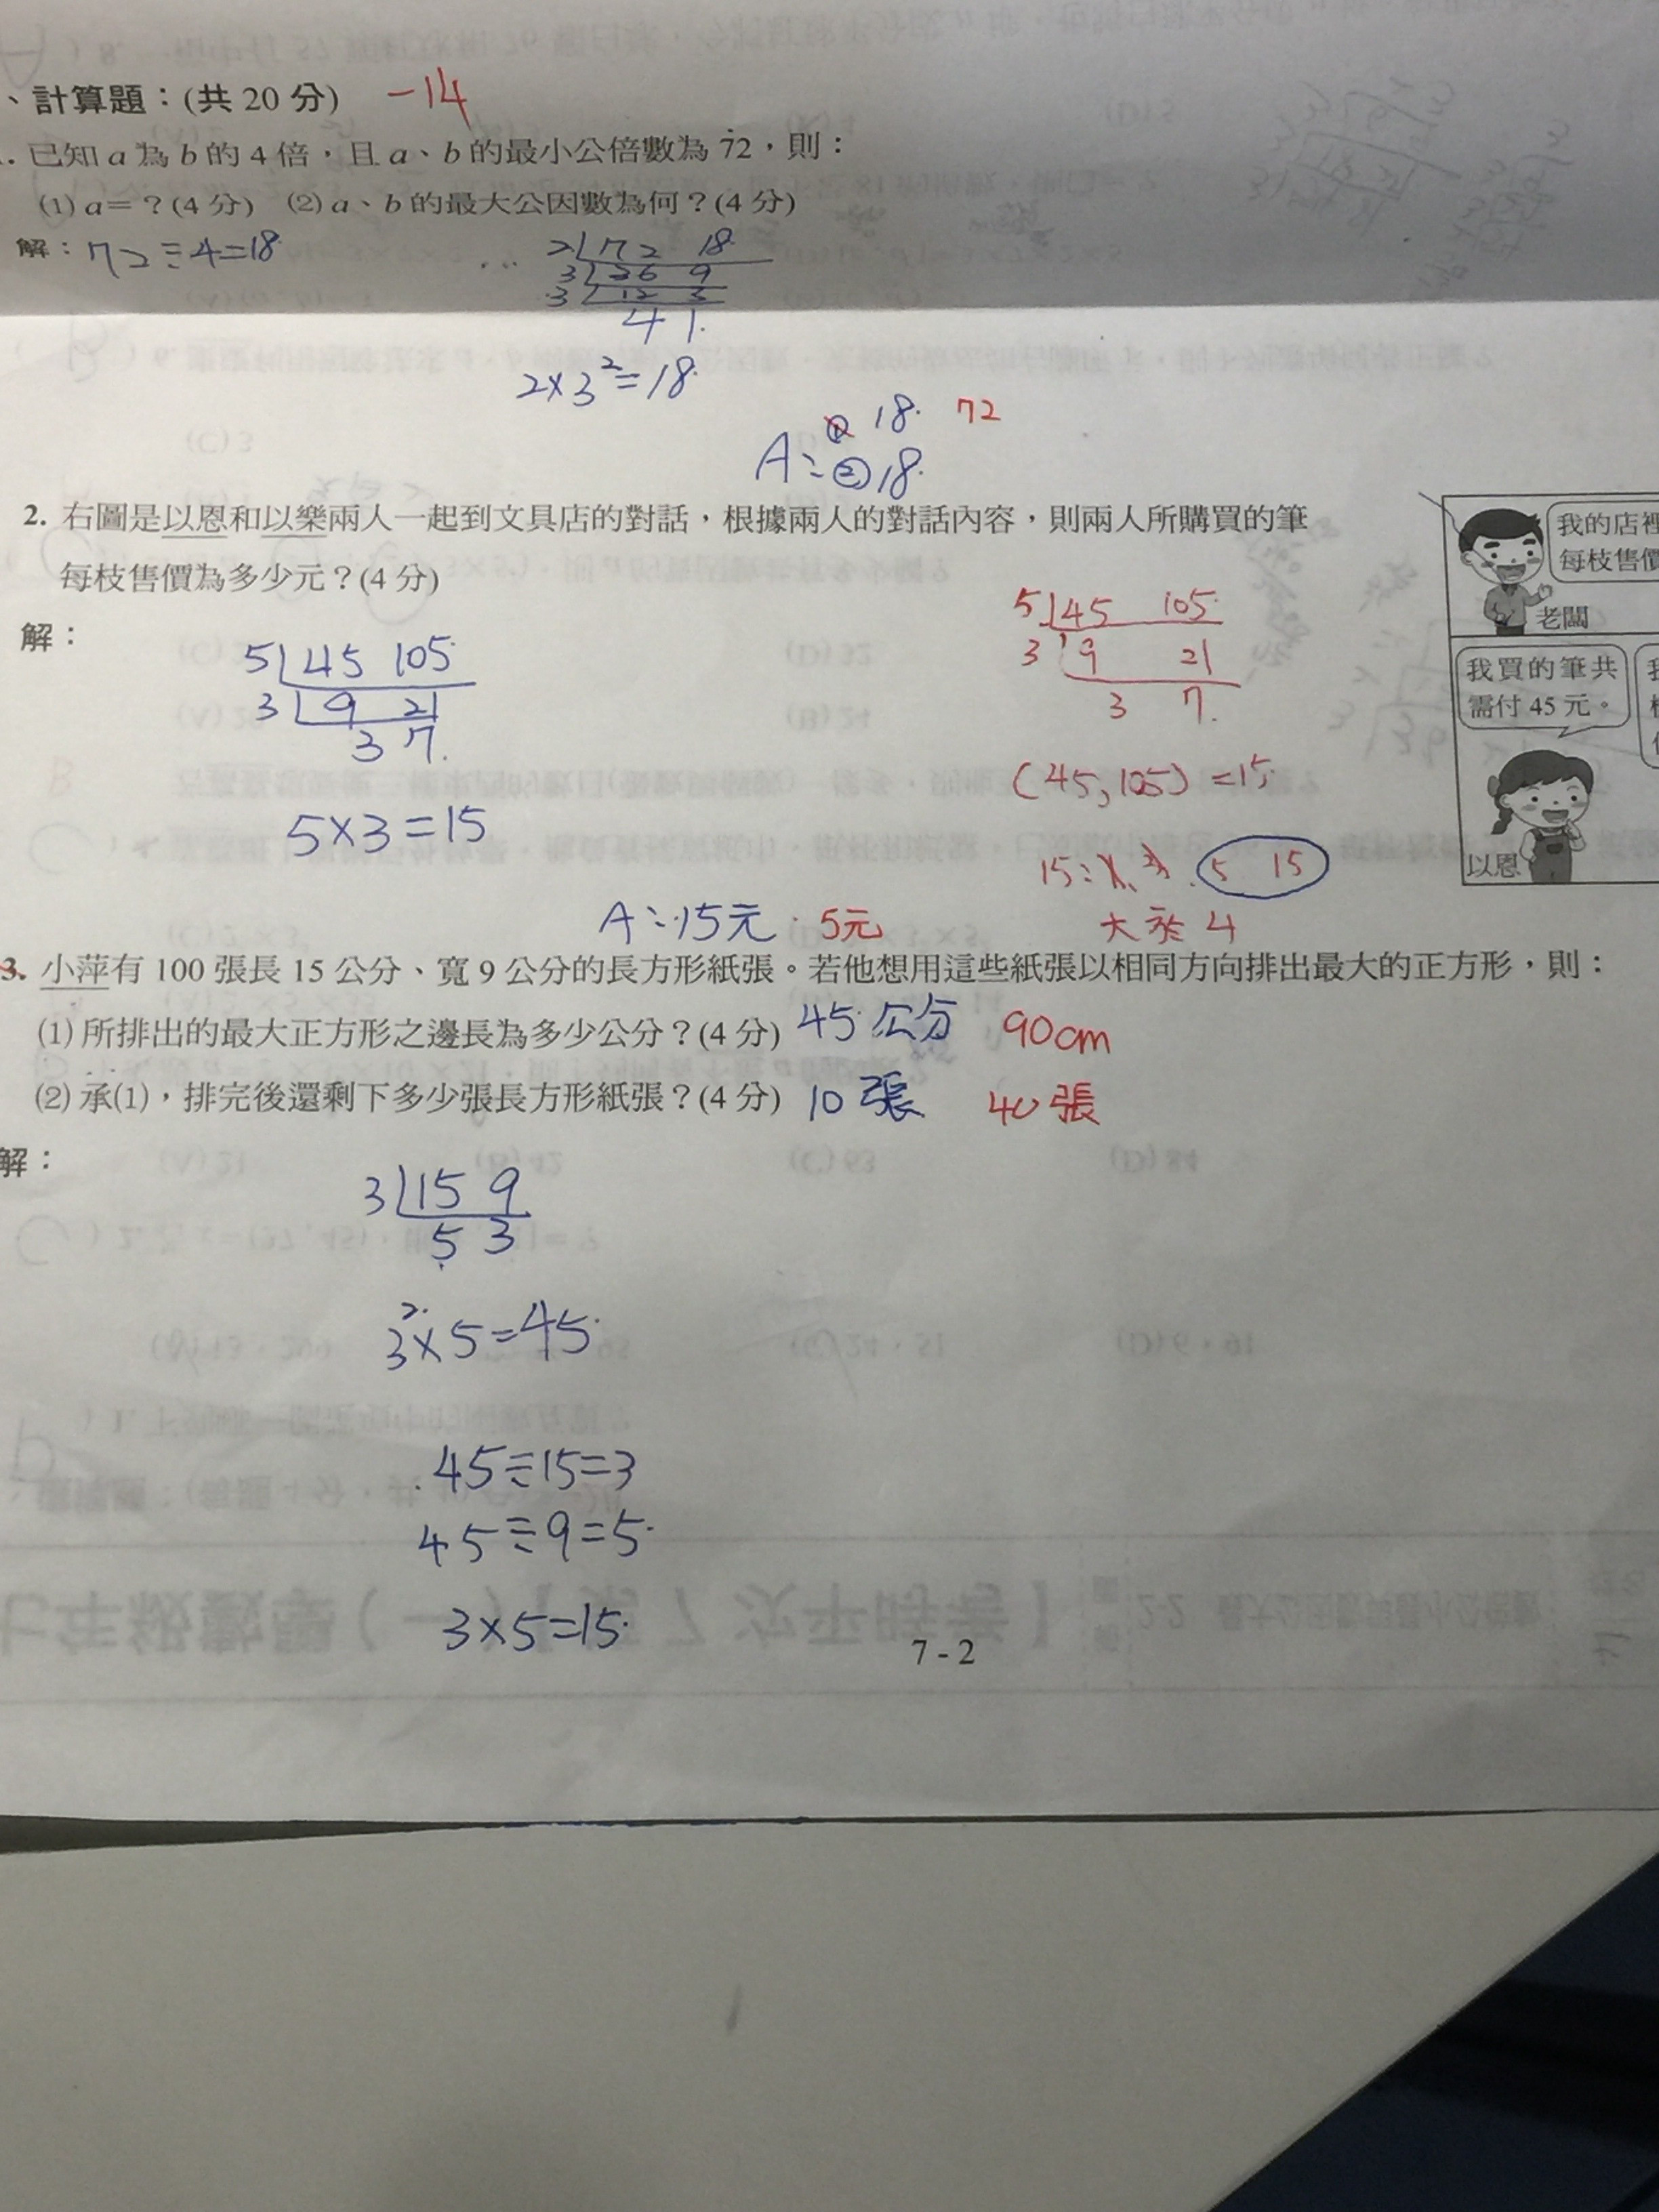 、計算題：(共 20 分) -14
. 已知 a 為 b 的 4 倍，且 a、b 的最小公倍數為 72，則：
(1) a=？(4 分) (2) a、b 的最大公因數為何？(4 分)
解：72÷4=18
2 72 18
3 36 9
3 12 3
4 1
2×3²=18
① 18 72
A：② 18
2. 右圖是以恩和以樂兩人一起到文具店的對話，根據兩人的對話內容，則兩人所購買的筆
每枝售價為多少元？(4 分)
我的店裡
每枝售價
老闆
我買的筆共
需付 45 元。
以恩
解：
5 45 105
3 9 21
3 7
5×3=15
5 45 105
3 9 21
3 7
(45,105)=15
15：1、3、5 15
大於 4
A：15元 5元
3. 小萍有 100 張長 15 公分、寬 9 公分的長方形紙張。若他想用這些紙張以相同方向排出最大的正方形，則：
(1) 所排出的最大正方形之邊長為多少公分？(4 分) 45 公分 90cm
(2) 承(1)，排完後還剩下多少張長方形紙張？(4 分) 10 張 40 張
解：
3 15 9
5 3
3²×5=45
45÷15=3
45÷9=5
3×5=15
7 - 2